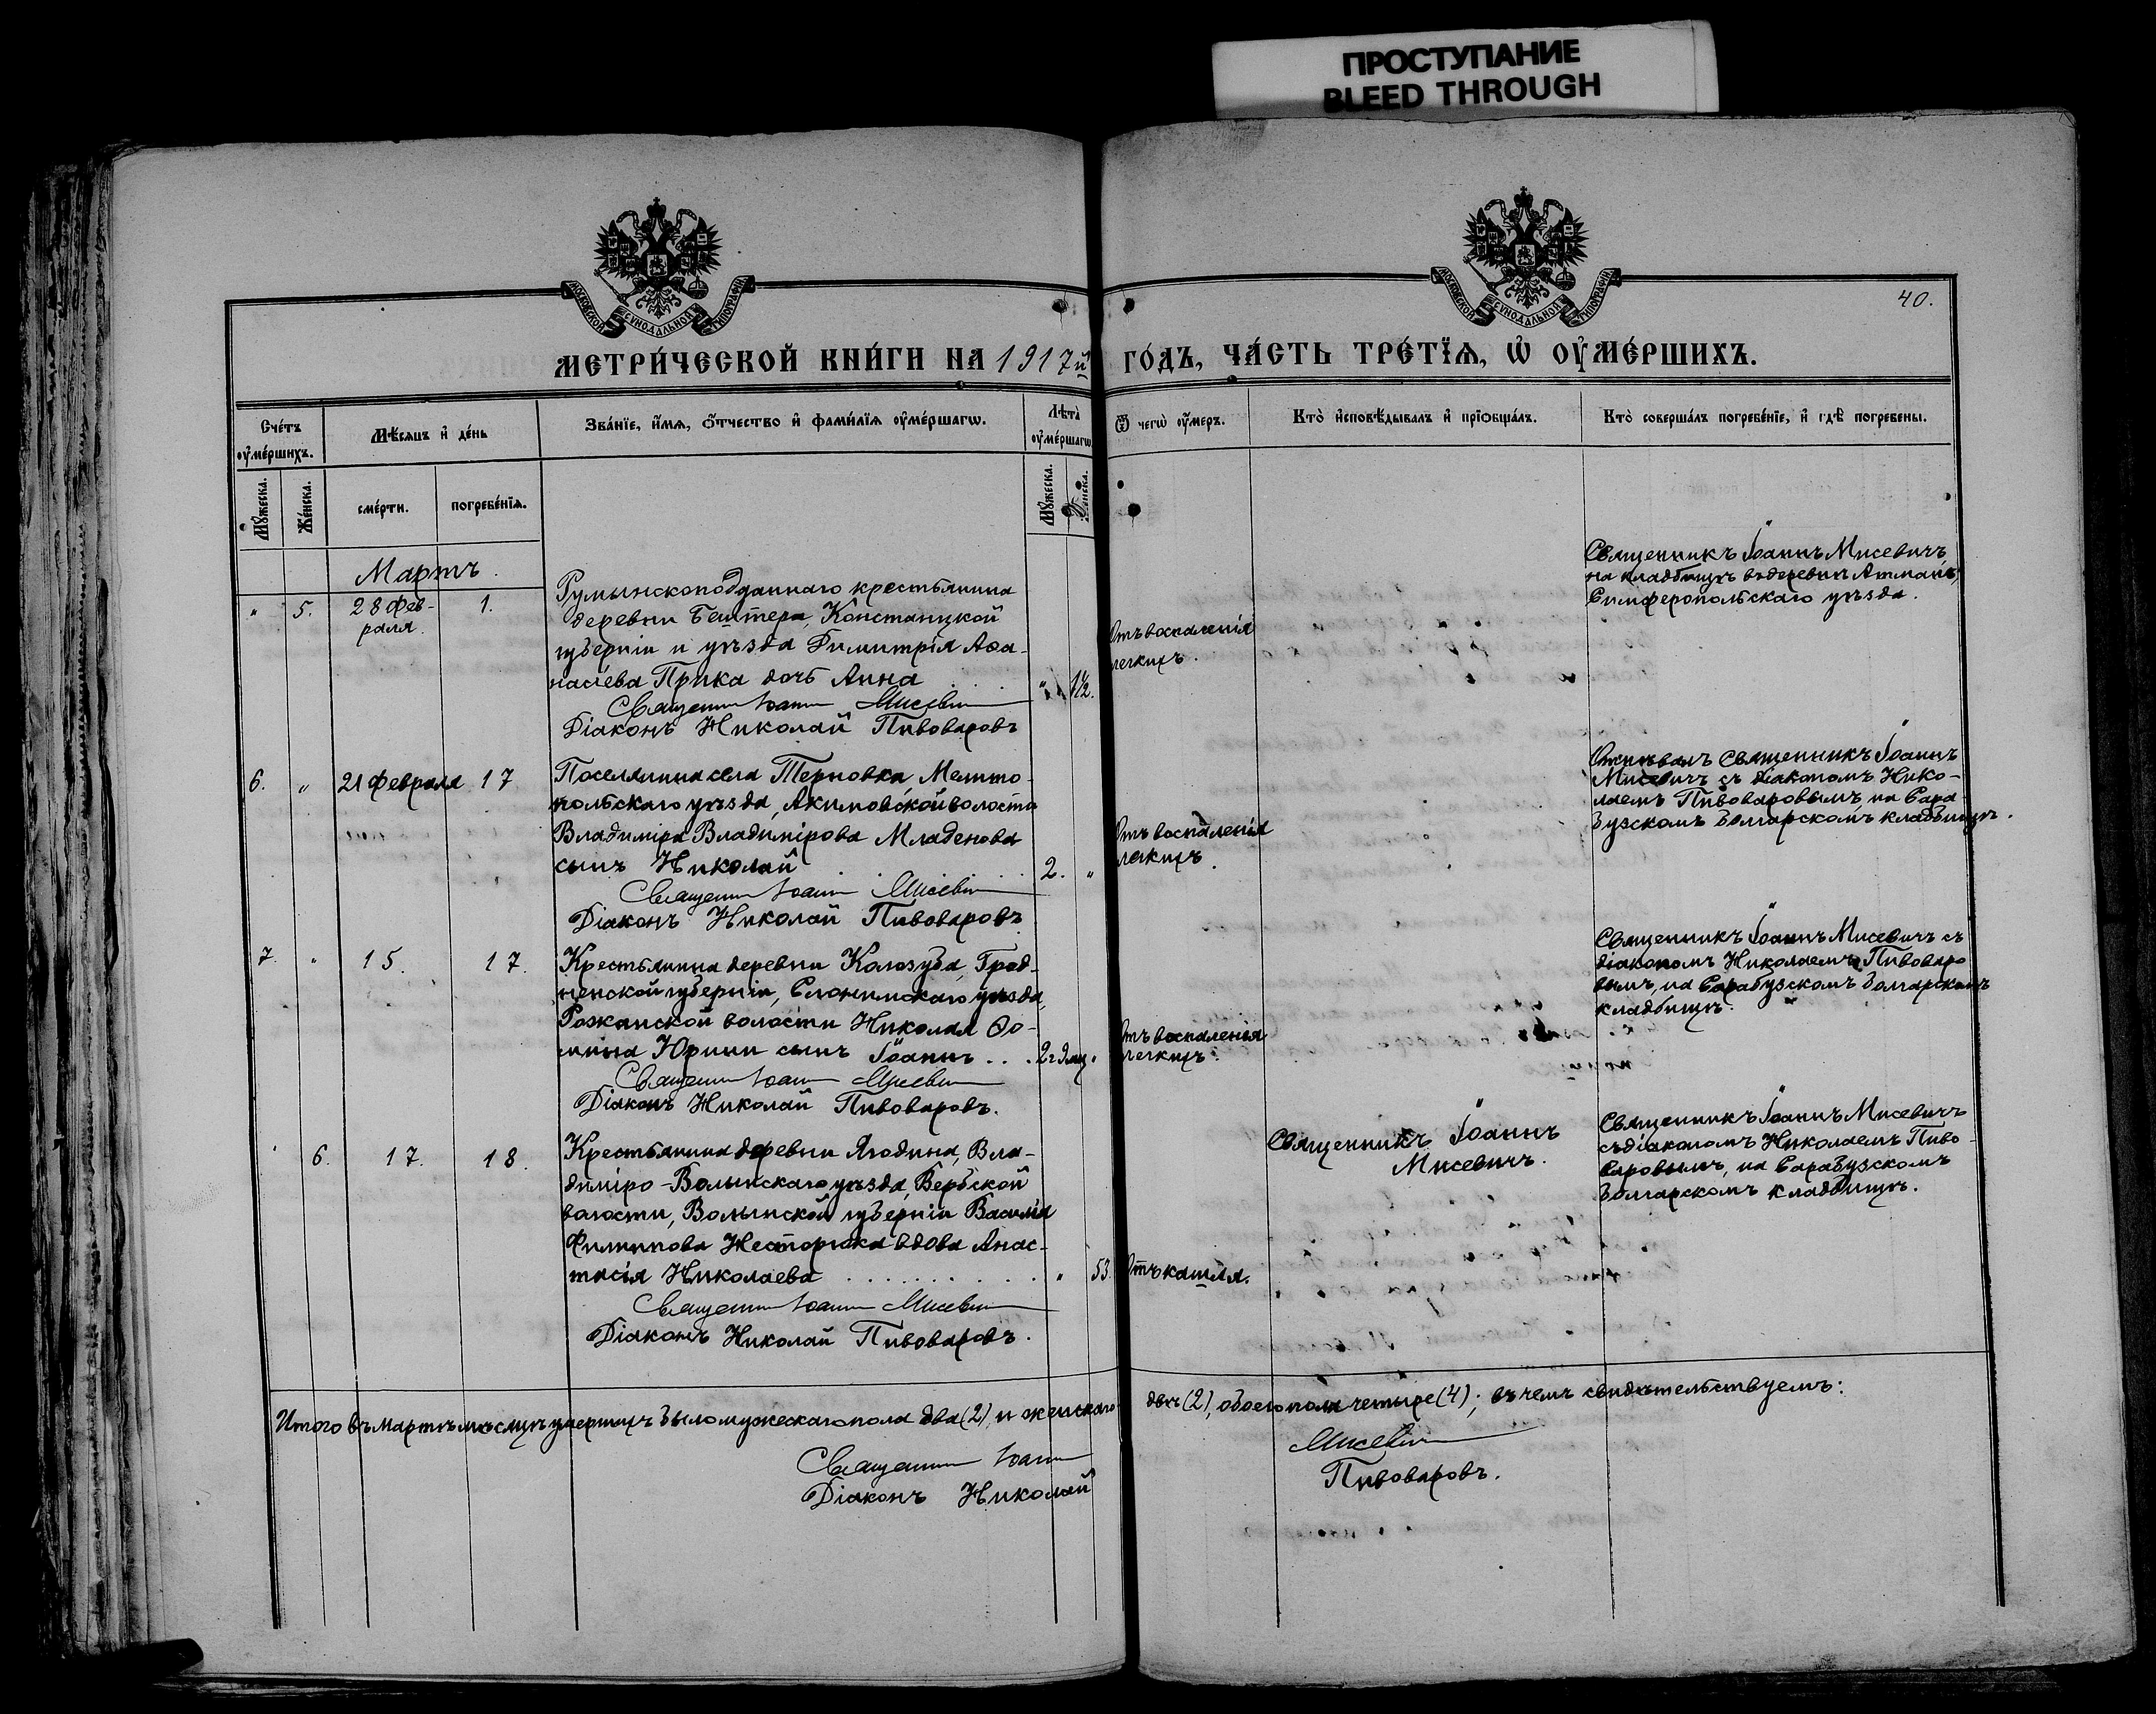 ПРОСТУПАНИЕ
BLEED THROUGH
МОСКОВСКОЙ СУНОДАЛЬНОЙ ТИПОГРАФІИ
МОСКОВСКОЙ СУНОДАЛЬНОЙ ТИПОГРАФІИ
40.
МЕТРИ́ЧЕСКОЙ КНИ́ГИ НА 1917й
ГО́ДЪ, ЧА́СТЬ ТРЕ́ТЇѦ, Ѡ҆ ОУ҆МЕ́РШИХЪ.
Сче́тъ оу҆ме́ршихъ.
Мѣ́сѧцъ и҆ де́нь
Зва́нїе, и҆́мѧ, ѻ҆́тчество и҆ фами́лїѧ оу҆ме́ршагѡ.
Лѣта̀ оу҆ме́ршагѡ
Ѿ чегѡ̀ оу҆́меръ.
Кто̀ и҆сповѣ́дывалъ и҆ прїѡбща́лъ.
Кто̀ соверша́лъ погребе́нїе, и҆ гдѣ̀ погребены.
Мꙋ́жеска.
Же́нска.
сме́рти.
погребе́нїѧ.
Мꙋ́жеска.
Же́нска.
Мартъ.
" 5. 28 Фев-
раля.
1.
Румынскоподданнаго крестьянина
деревни Бештера, Констанцкой
губерніи и уѣзда Димитрія Аѳа-
насіева Прика дочь Анна
" 1½.
Священникъ Іоаннъ Мисевичъ
Діаконъ Николай Пивоваровъ
Отъ воспаленія
легкихъ.
Священникъ Іоаннъ Мисевичъ
на кладбищѣ въ деревни Атманъ,
Симферопольскаго уѣзда.
6. " 21 Февраля 17
Поселянина села Терновка, Мелито-
польскаго уѣзда, Акимовской волости
Владиміра Владимірова Младенова
сынъ Николай
2. "
Священникъ Іоаннъ Мисевичъ
Діаконъ Николай Пивоваровъ
Отъ воспаленія
легкихъ.
Отпѣвалъ Священникъ Іоаннъ
Мисевичъ съ діакономъ Нико-
лаемъ Пивоваровымъ, на Сара-
бузскомъ болгарскомъ кладбищѣ.
7. " 15. 17.
Крестьянина деревни Колозуба, Грод-
ненской губерніи, Слонимскаго уѣзда,
Рожанской волости Николая Ѳо-
мина Юрини сынъ Іоаннъ . . .
2 г 9 мц "
Священникъ Іоаннъ Мисевичъ
Діаконъ Николай Пивоваровъ.
Отъ воспаленія
легкихъ.
Священникъ Іоаннъ Мисевичъ съ
діакономъ Николаемъ Пивоваро
вымъ, на Сарабузскомъ болгарскомъ
кладбищѣ.
" 6. 17. 18.
Крестьянина деревни Ягодина, Вла-
диміро-Волынскаго уѣзда, Вербской
волости, Волынской губерніи Василія
Филиппова Несторука вдова Анас-
тасія Николаева . . . . . . . . . .
" 53.
Священникъ Іоаннъ Мисевичъ
Діаконъ Николай Пивоваровъ.
Отъ кашля.
Священникъ Іоаннъ
Мисевичъ.
Священникъ Іоаннъ Мисевичъ
съ діакономъ Николаемъ Пиво-
варовымъ, на Сарабузскомъ
болгарскомъ кладбищѣ.
Итого въ мартѣ мѣсяцѣ умершихъ было мужескаго пола два (2) и женскаго
двѣ (2), обоего пола четыре (4); въ чемъ свидѣтельствуемъ:
Священникъ Іоаннъ
Мисевичъ
Діаконъ Николай
Пивоваровъ.